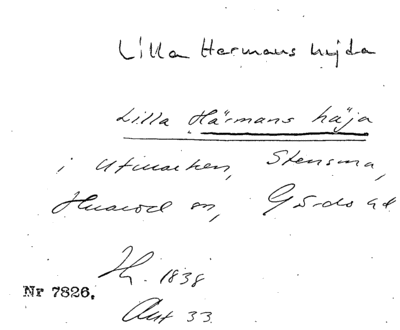 Lilla Hermans hejda
Lilla Härmans häja
i Utmarken, Stensma,
Hvarod sn, Gärds hd
H. 1838
Akt 33.
Nr 7826.